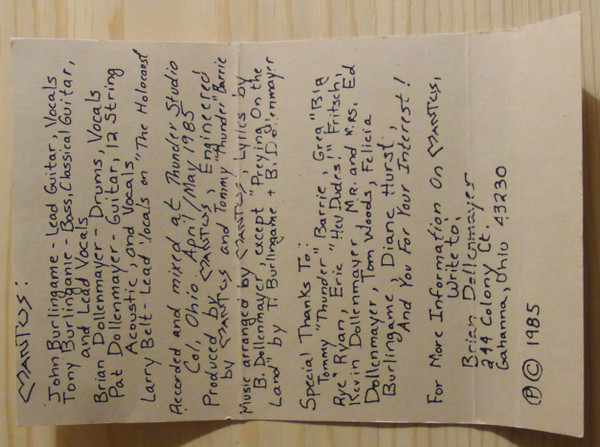 MANTUS:
John Burlingame - Lead Guitar, Vocals
Tony Burlingame - Bass, Classical Guitar,
and Lead Vocals
Brian Dollenmayer - Drums, Vocals
Pat Dollenmayer - Guitar, 12 String
Acoustic, and Vocals
Larry Belt - Lead Vocals on "The Holocaust
Recorded and mixed at Thunder Studio
Col, Ohio April/May 1985
Produced by MANTUS, Engineered
by MANTUS and Tommy "Thunder" Barrie
Music arranged by MANTUS, Lyrics by
B. Dollenmayer, except "Preying On the
Land" by T. Burlingame + B. Dollenmayer
Special Thanks To:
Tommy "Thunder" Barrie, Greg "Big
Rye" Ryan, Eric "Hey Dudes!" Fritsch,
Kevin Dollenmayer, Mr. and Mrs. Ed
Dollenmayer, Tom Woods, Felicia
Burlingame, Diane Hurst,
And You For Your Interest!
For More Information On MANTUS,
Write to:
Brian Dollenmayer
244 Colony Ct.
Gahanna, Ohio 43230
Ⓟ © 1985